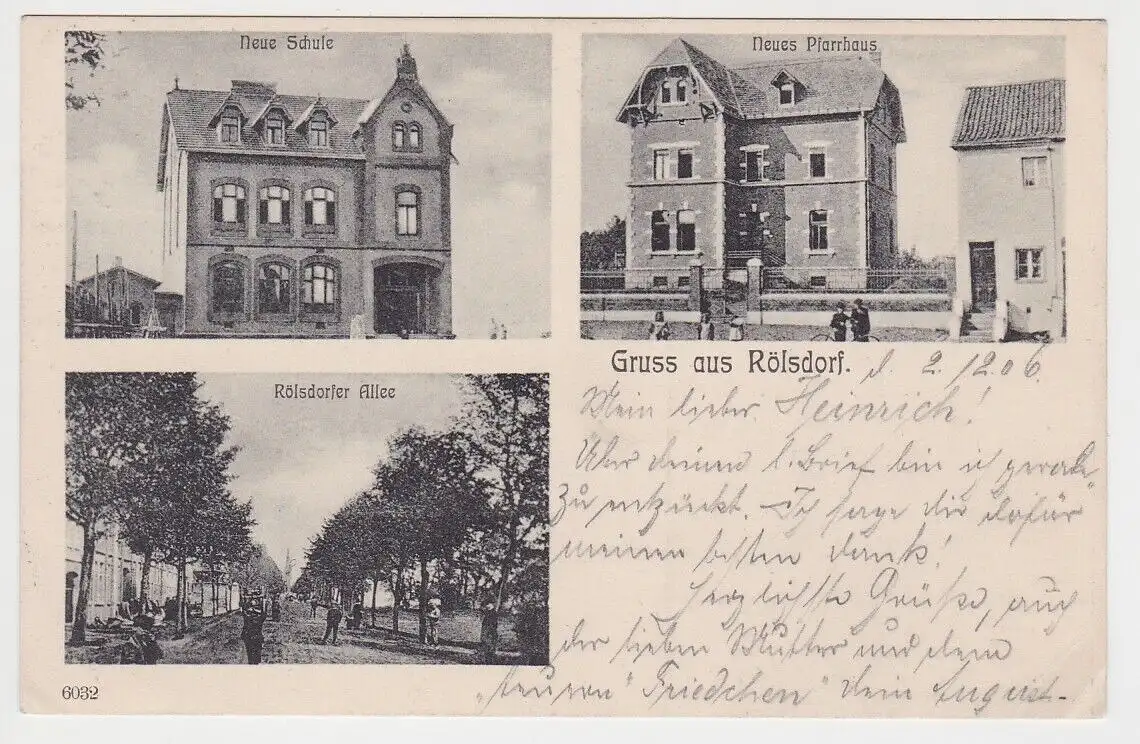 Neue Schule
Neues Pfarrhaus
Gruss aus Rölsdorf.
d. 2. 12. 06.
Rölsdorfer Allee
Mein lieber Heinrich!
Über deinen l. Brief bin ich gerade
zu entzückt. Ich sage dir dafür
meinen besten Dank!
Herzlichste Grüße, auch
der lieben Mutter und dem
„teuren“ Friedchen“ dein August.
6032